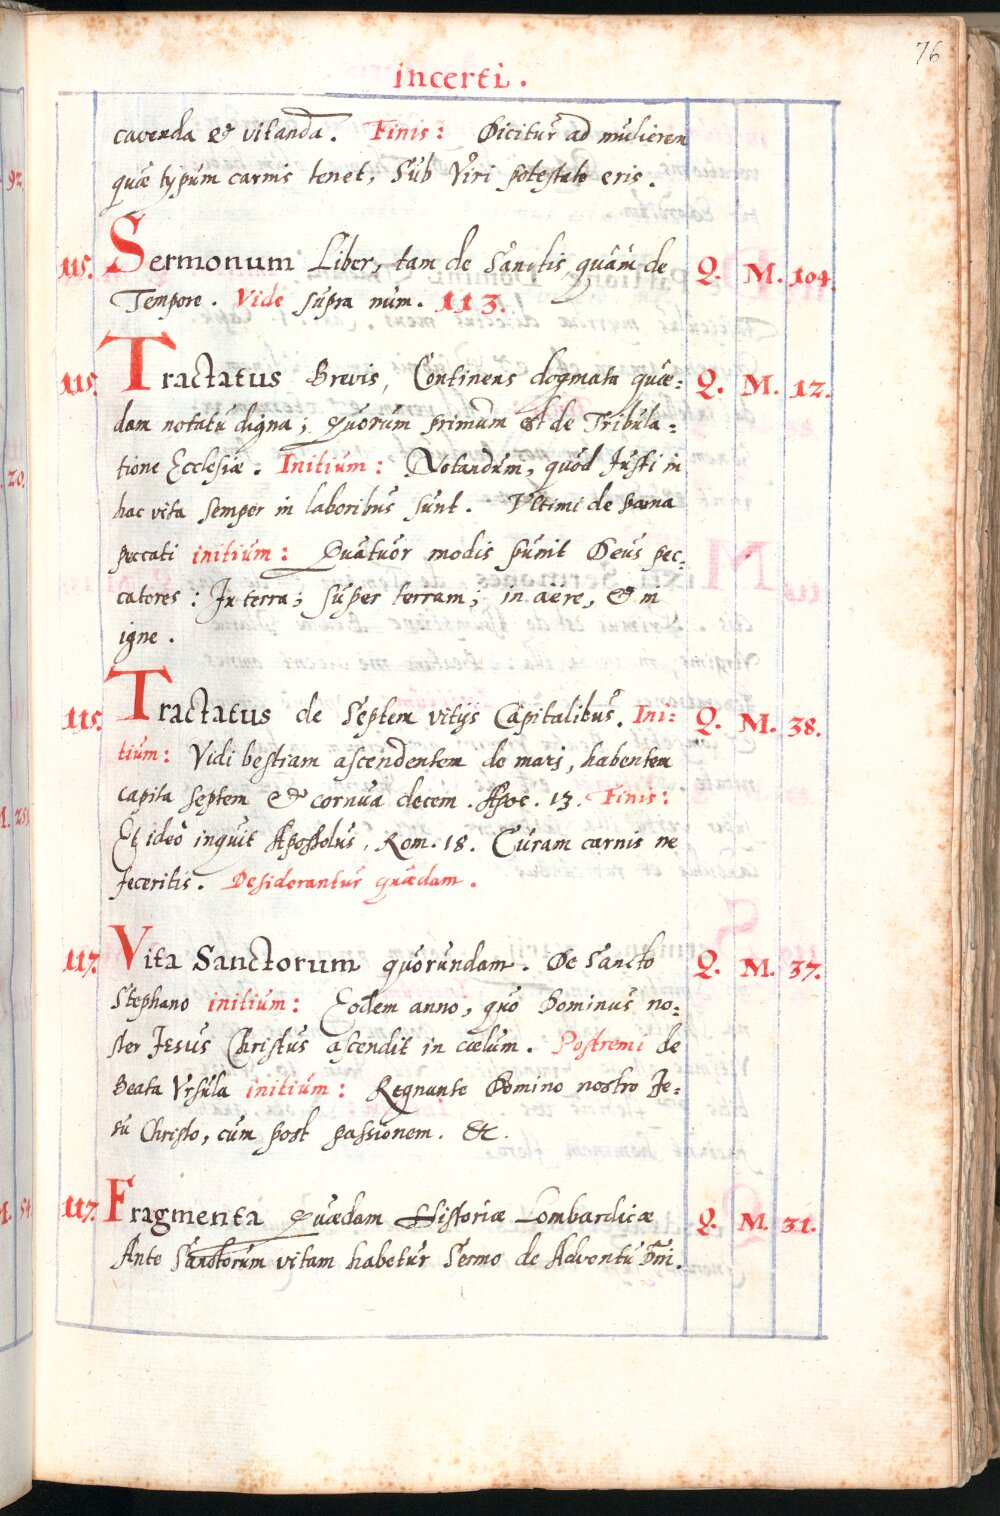 76
incerti.
cavenda et vitanda. Finis: Dicitur ad mulierem
quæ typum carnis tenet, Sub Viri potestate eris.
115. Sermonum Liber, tam de Sanctis quàm de Q. M. 104.
Tempore. Vide supra num. 113.
115. Tractatus Brevis, Continens dogmata quæ= Q. M. 12.
dam notatu digna; Quorum primum est de Tribula=
tione Ecclesiæ. Initium: Notandum, quòd Justi in
hac vita semper in laboribus sunt. Ultimi de pœna
peccati initium: Quatuor modis punit Deus pec=
catores: In terra; super terram; in aëre, et in
igne.
115. Tractatus de Septem vitijs Capitalibus. Ini= Q. M. 38.
tium: Vidi bestiam ascendentem de mari, habentem
capita septem et cornua decem. Apoc. 13. Finis:
Et ideò inquit Apostolus, Rom. 18. Curam carnis ne
feceritis. Desiderantur quædam.
117. Vita Sanctorum quorundam. De Sancto Q. M. 37.
Stephano initium: Eodem anno, quo Dominus no=
ster Jesus Christus ascendit in cœlum. Postremi de
Beata Ursula initium: Regnante Domino nostro Je=
su Christo, cum post passionem. &c.
117. Fragmenta Quædam Historiæ Lombardicæ Q. M. 31.
Ante Sanctorum vitam habetur Sermo de Adventu Dni.
92.
20.
M. 251
M. 54